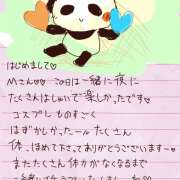 はじめまして♡
Mさん♡♡ この日は一緒に夜に
たくさんはしゃいで楽しかったです♥
コスプレものすごく
はずかしかったーーたくさん
体、ほめて下さてありがとうございますー
またたくさん体力がなくなるまで